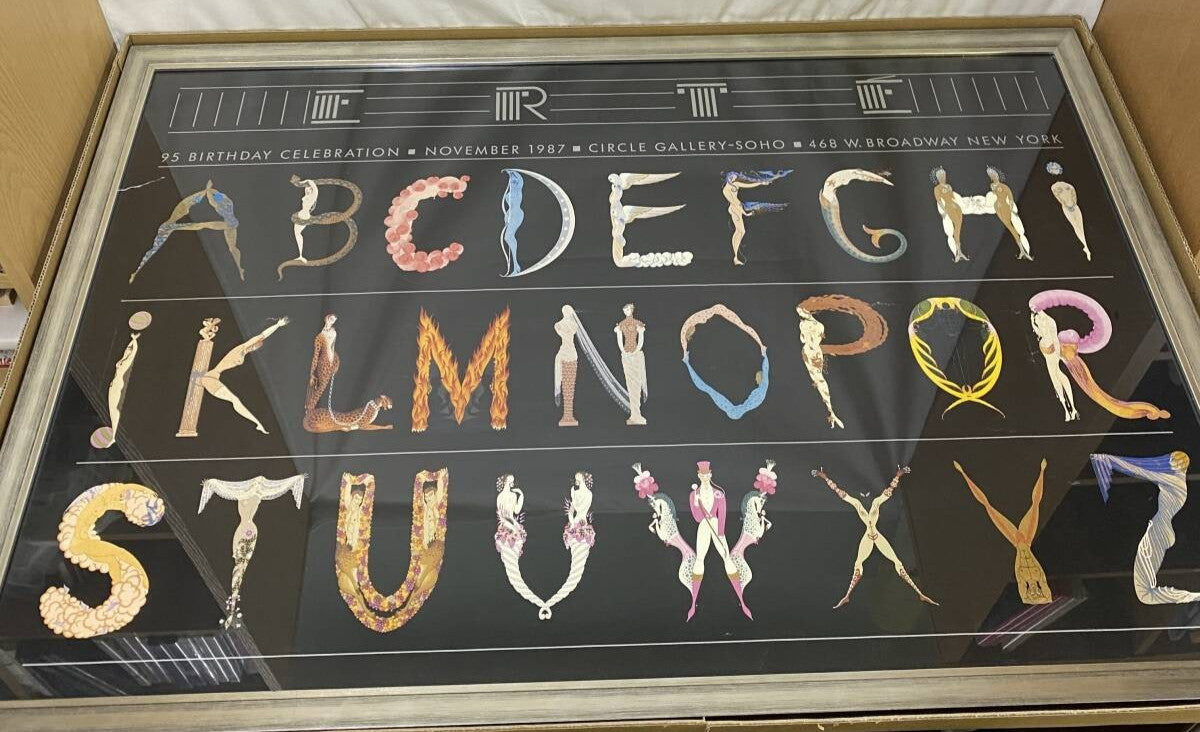 ERTÉ
95 BIRTHDAY CELEBRATION ▪ NOVEMBER 1987 ▪ CIRCLE GALLERY-SOHO ▪ 468 W. BROADWAY NEW YORK
A B C D E F G H i
j K L M N O P Q R
S T U V W X Y Z